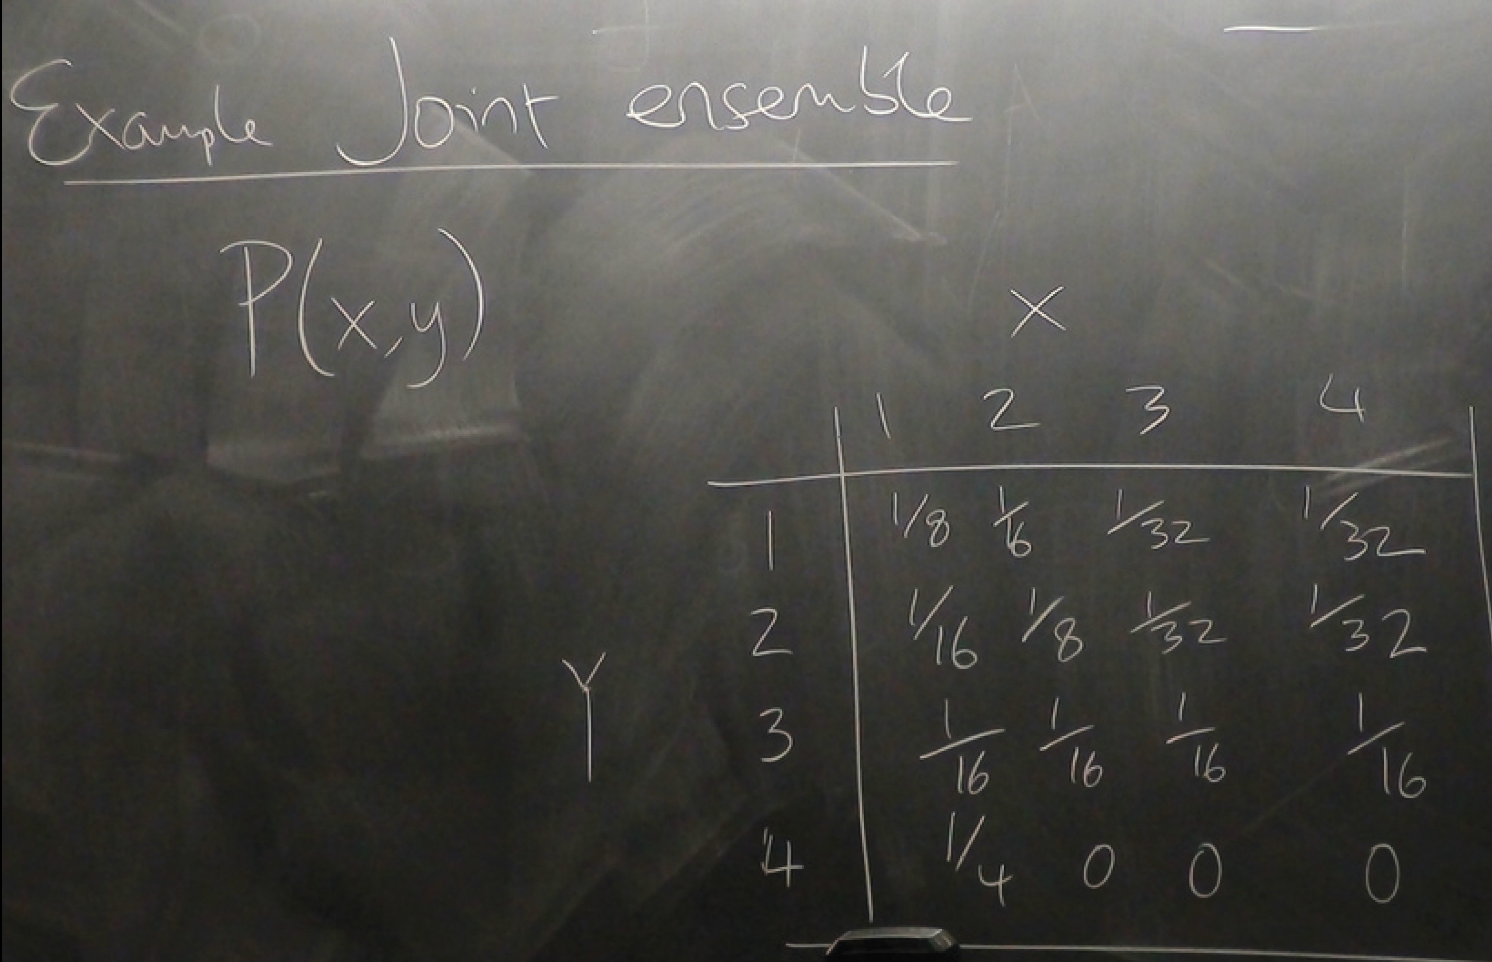 Example Joint ensemble
P(x,y)
X
1 2 3 4
1 1/8 1/16 1/32 1/32
2 1/16 1/8 1/32 1/32
Y
3 1/16 1/16 1/16 1/16
4 1/4 0 0 0